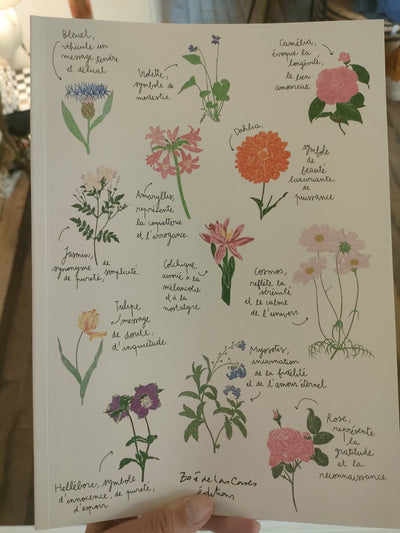 Bleuet,
véhicule un
message tendre
et délicat
Violette,
symbole de
modestie
Camélia,
évoque la
longévité,
le lien
amoureux
Amaryllis,
représente
la coquetterie
et l'arrogance
Dahlia,
symbole
de
beauté
luxuriante,
de
puissance
Jasmin,
synonyme de
de pureté, simplicité
Colchique,
associé à la
mélancolie
et à la
nostalgie
Cosmos,
reflète la
sérénité
et le calme
de l'univers
Tulipe
message
de doute
d'inquiétude
Myosotis,
incarnation
de la fidélité
et de l'amour éternel
Rose,
représente
la
gratitude
et la
reconnaissance
Hellébore, symbole
d'innocence, de pureté,
d'espoir
Zoé de Las Cases
éditions